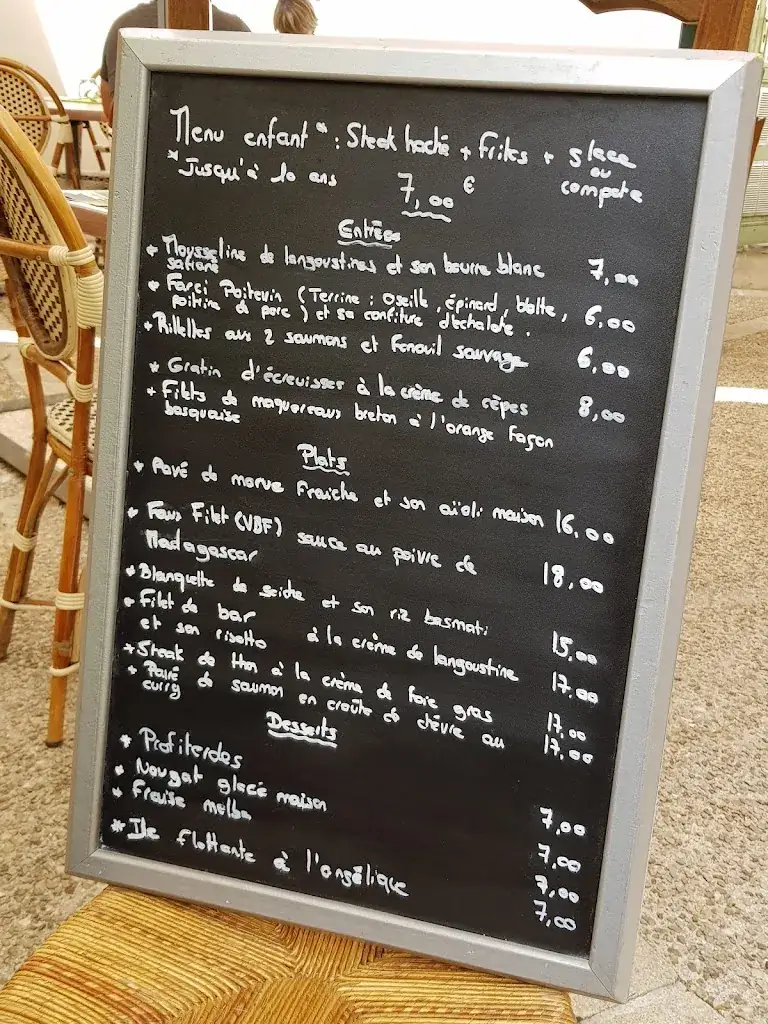 Menu enfant* : Steak haché + Frites + glace
ou
compote
*Jusqu'à 10 ans 7,00 €
Entrées
* Mousseline de langoustines et son beurre blanc 7,00
safrané
* Farci Poitevin (Terrine : Oseille, épinard, blette, 6,00
poitrine de porc) et sa confiture d'échalote.
* Rillettes aux 2 saumons et Fenouil sauvage 6,00
* Gratin d'écrevisses à la crème de cèpes 8,00
* Filets de maquereaux breton à l'orange façon
basquaise
Plats
* Pavé de morue Fraiche et son aïoli maison 16,00
* Faux Filet (VBF) sauce au poivre de 18,00
Madagascar
* Blanquette de seiche et son riz basmati 15,00
* Filet de bar à la crème de langoustine 17,00
et son risotto
* Steak de thon à la crème de foie gras 17,00
* Pavé de saumon en croûte de chèvre au 17,00
curry
Desserts
* Profiteroles 7,00
* Nougat glacé maison 7,00
* Fraise melba 7,00
* Ile flottante à l'angélique 7,00